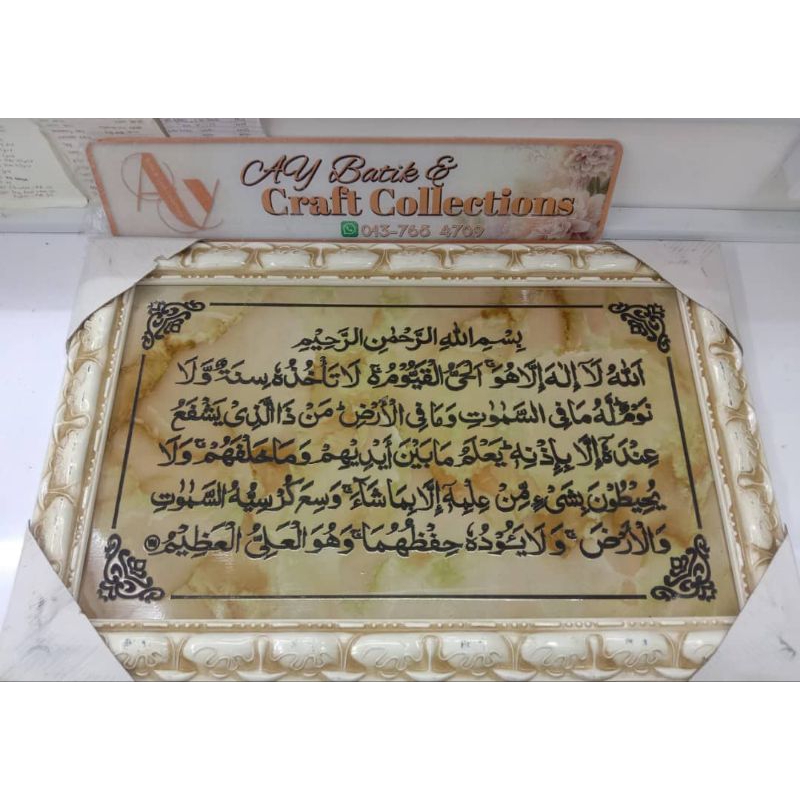 AY
AY Batik &
Craft Collections
013-766 4709
بِسْمِ اللهِ الرَّحْمٰنِ الرَّحِيْمِ
اَللهُ لَا إِلٰهَ إِلَّا هُوَ ۚ اَلْحَيُّ الْقَيُّوْمُ ەۚ لَا تَأْخُذُهٗ سِنَةٌ وَّلَا
نَوْمٌ ۗ لَهٗ مَا فِي السَّمٰوٰتِ وَمَا فِي الْأَرْضِ ۗ مَنْ ذَا الَّذِيْ يَشْفَعُ
عِنْدَهٗ إِلَّا بِإِذْنِهٖ ۗ يَعْلَمُ مَا بَيْنَ أَيْدِيْهِمْ وَمَا خَلْفَهُمْ ۚ وَلَا
يُحِيْطُوْنَ بِشَيْءٍ مِّنْ عِلْمِهٖ إِلَّا بِمَا شَاءَ ۚ وَسِعَ كُرْسِيُّهُ السَّمٰوٰتِ
وَالْأَرْضَ ۚ وَلَا يَـُٔوْدُهٗ حِفْظُهُمَا ۚ وَهُوَ الْعَلِيُّ الْعَظِيْمُ